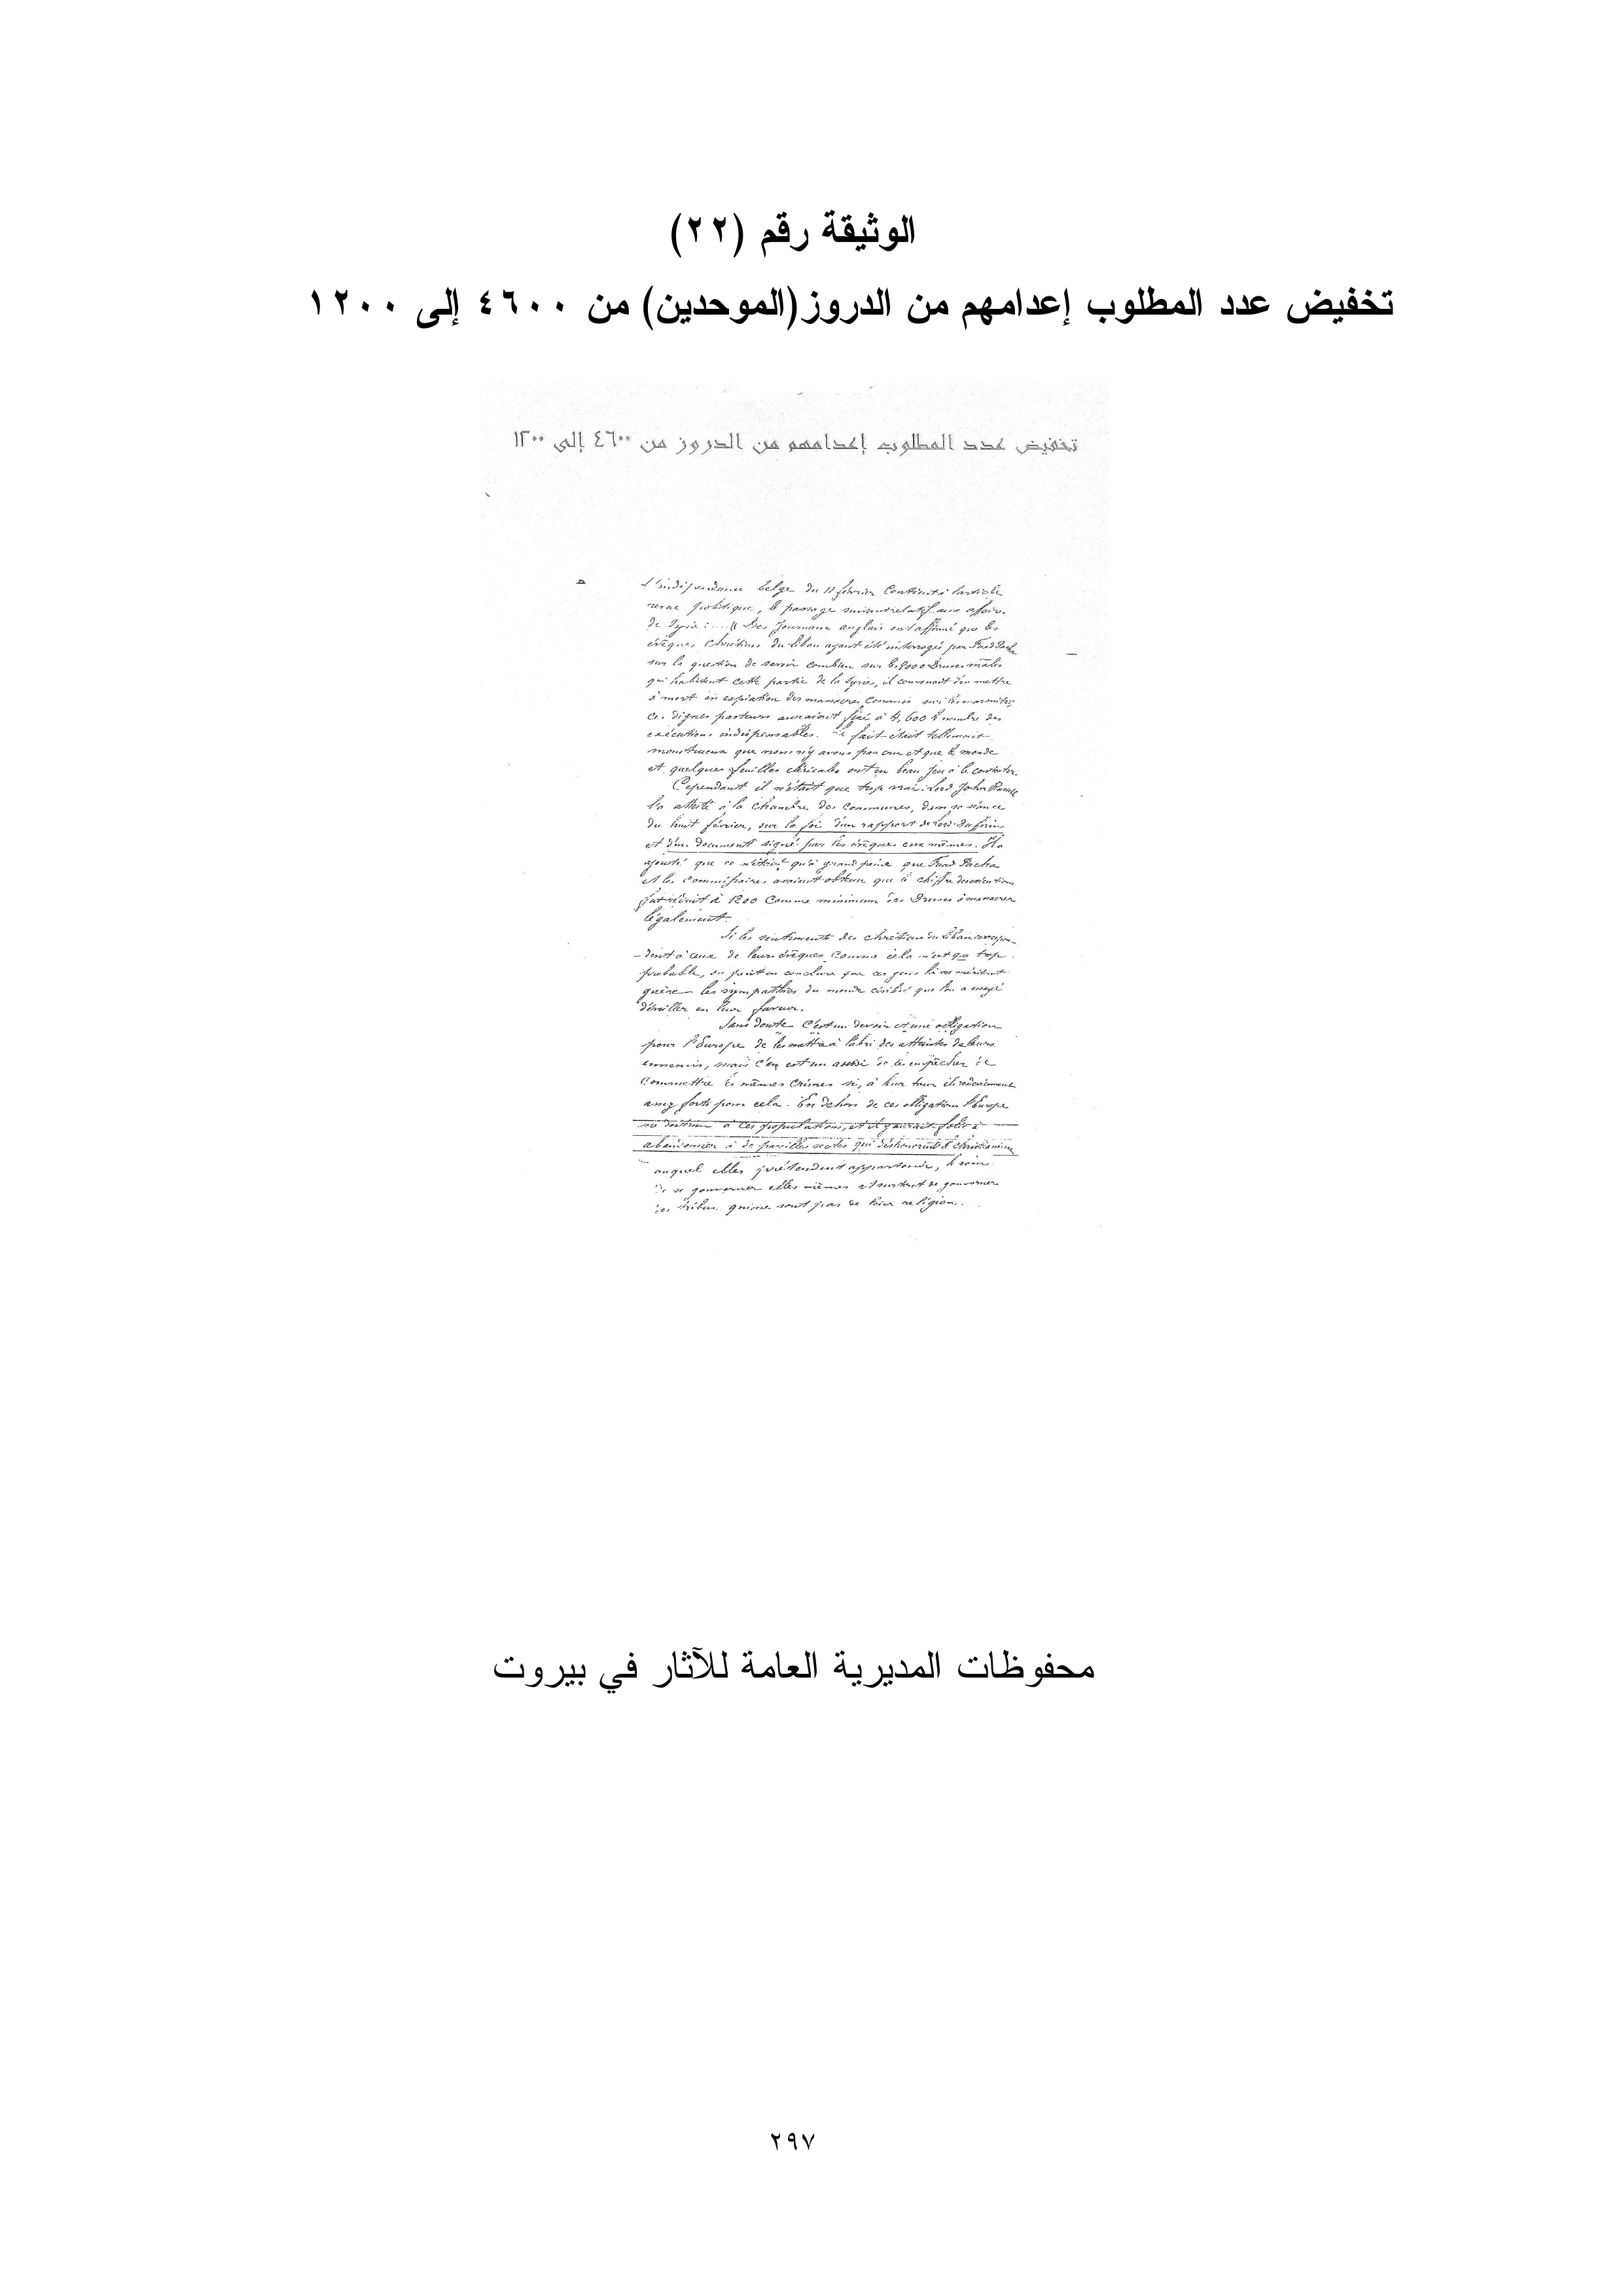 الوثيقة رقم (٢٢)
تخفيض عدد المطلوب إعدامهم من الدروز(الموحدين) من ٤٦٠٠ إلى ١٢٠٠
تخفيض عدد المطلوب إعدامهم من الدروز من ٤٦٠٠ إلى ١٢٠٠
L'indépendance belge du 11 février contient à l'article
revue politique, le passage suivant relatif aux affaires
de Syrie : .... « Des journaux anglais ont affirmé que les
évêques chrétiens du Liban ayant été interrogés par Fuad Pacha
sur la question de savoir combien sur Druses mâles
qui habitent cette partie de la Syrie, il convenait d'en mettre
à mort en expiation des massacres commis sur les maronites,
ces dignes pasteurs auraient fixé à 4,600 le nombre des
exécutions indispensables. Le fait était tellement
monstrueux que nous n'y avons pas cru et que le monde
et quelques feuilles cléricales ont eu beau jeu à le contester.
Cependant il n'était que trop vrai. Lord John Russell
l'a attesté à la chambre des communes, dans sa séance
du huit février, sur la foi d'un rapport de lord Dufferin
et d'un document signé par les évêques eux mêmes. Il a
ajouté que ce n'était qu'à grand peine que Fuad Pacha
et les commissaires avaient obtenu que le chiffre des exécutions
fut réduit à 1200 comme minimum des Druses à massacrer
légalement.
Si les sentiments des chrétiens du Liban correspon-
-dent à ceux de leurs évêques comme cela n'est que trop
probable, on peut en conclure que ces gens là ne méritent
guère les sympathies du monde civilisé que l'on a essayé
d'éveiller en leur faveur.
Sans doute c'est un devoir et une obligation
pour l'Europe de les mettre à l'abri des atteintes de leurs
ennemis, mais c'en est un aussi de les empêcher de
commettre les mêmes crimes si, à leur tour ils redeviennent
assez forts pour cela. En dehors de ces obligations l'Europe
à ces populations, et il y aurait folie à
abandonner à de pareilles sectes qui déshonorent le christianisme
auquel elles prétendent appartenir, le soin
de se gouverner elles mêmes et surtout de gouverner
des tribus qui ne sont pas de leur religion.
محفوظات المديرية العامة للآثار في بيروت
٢٩٧